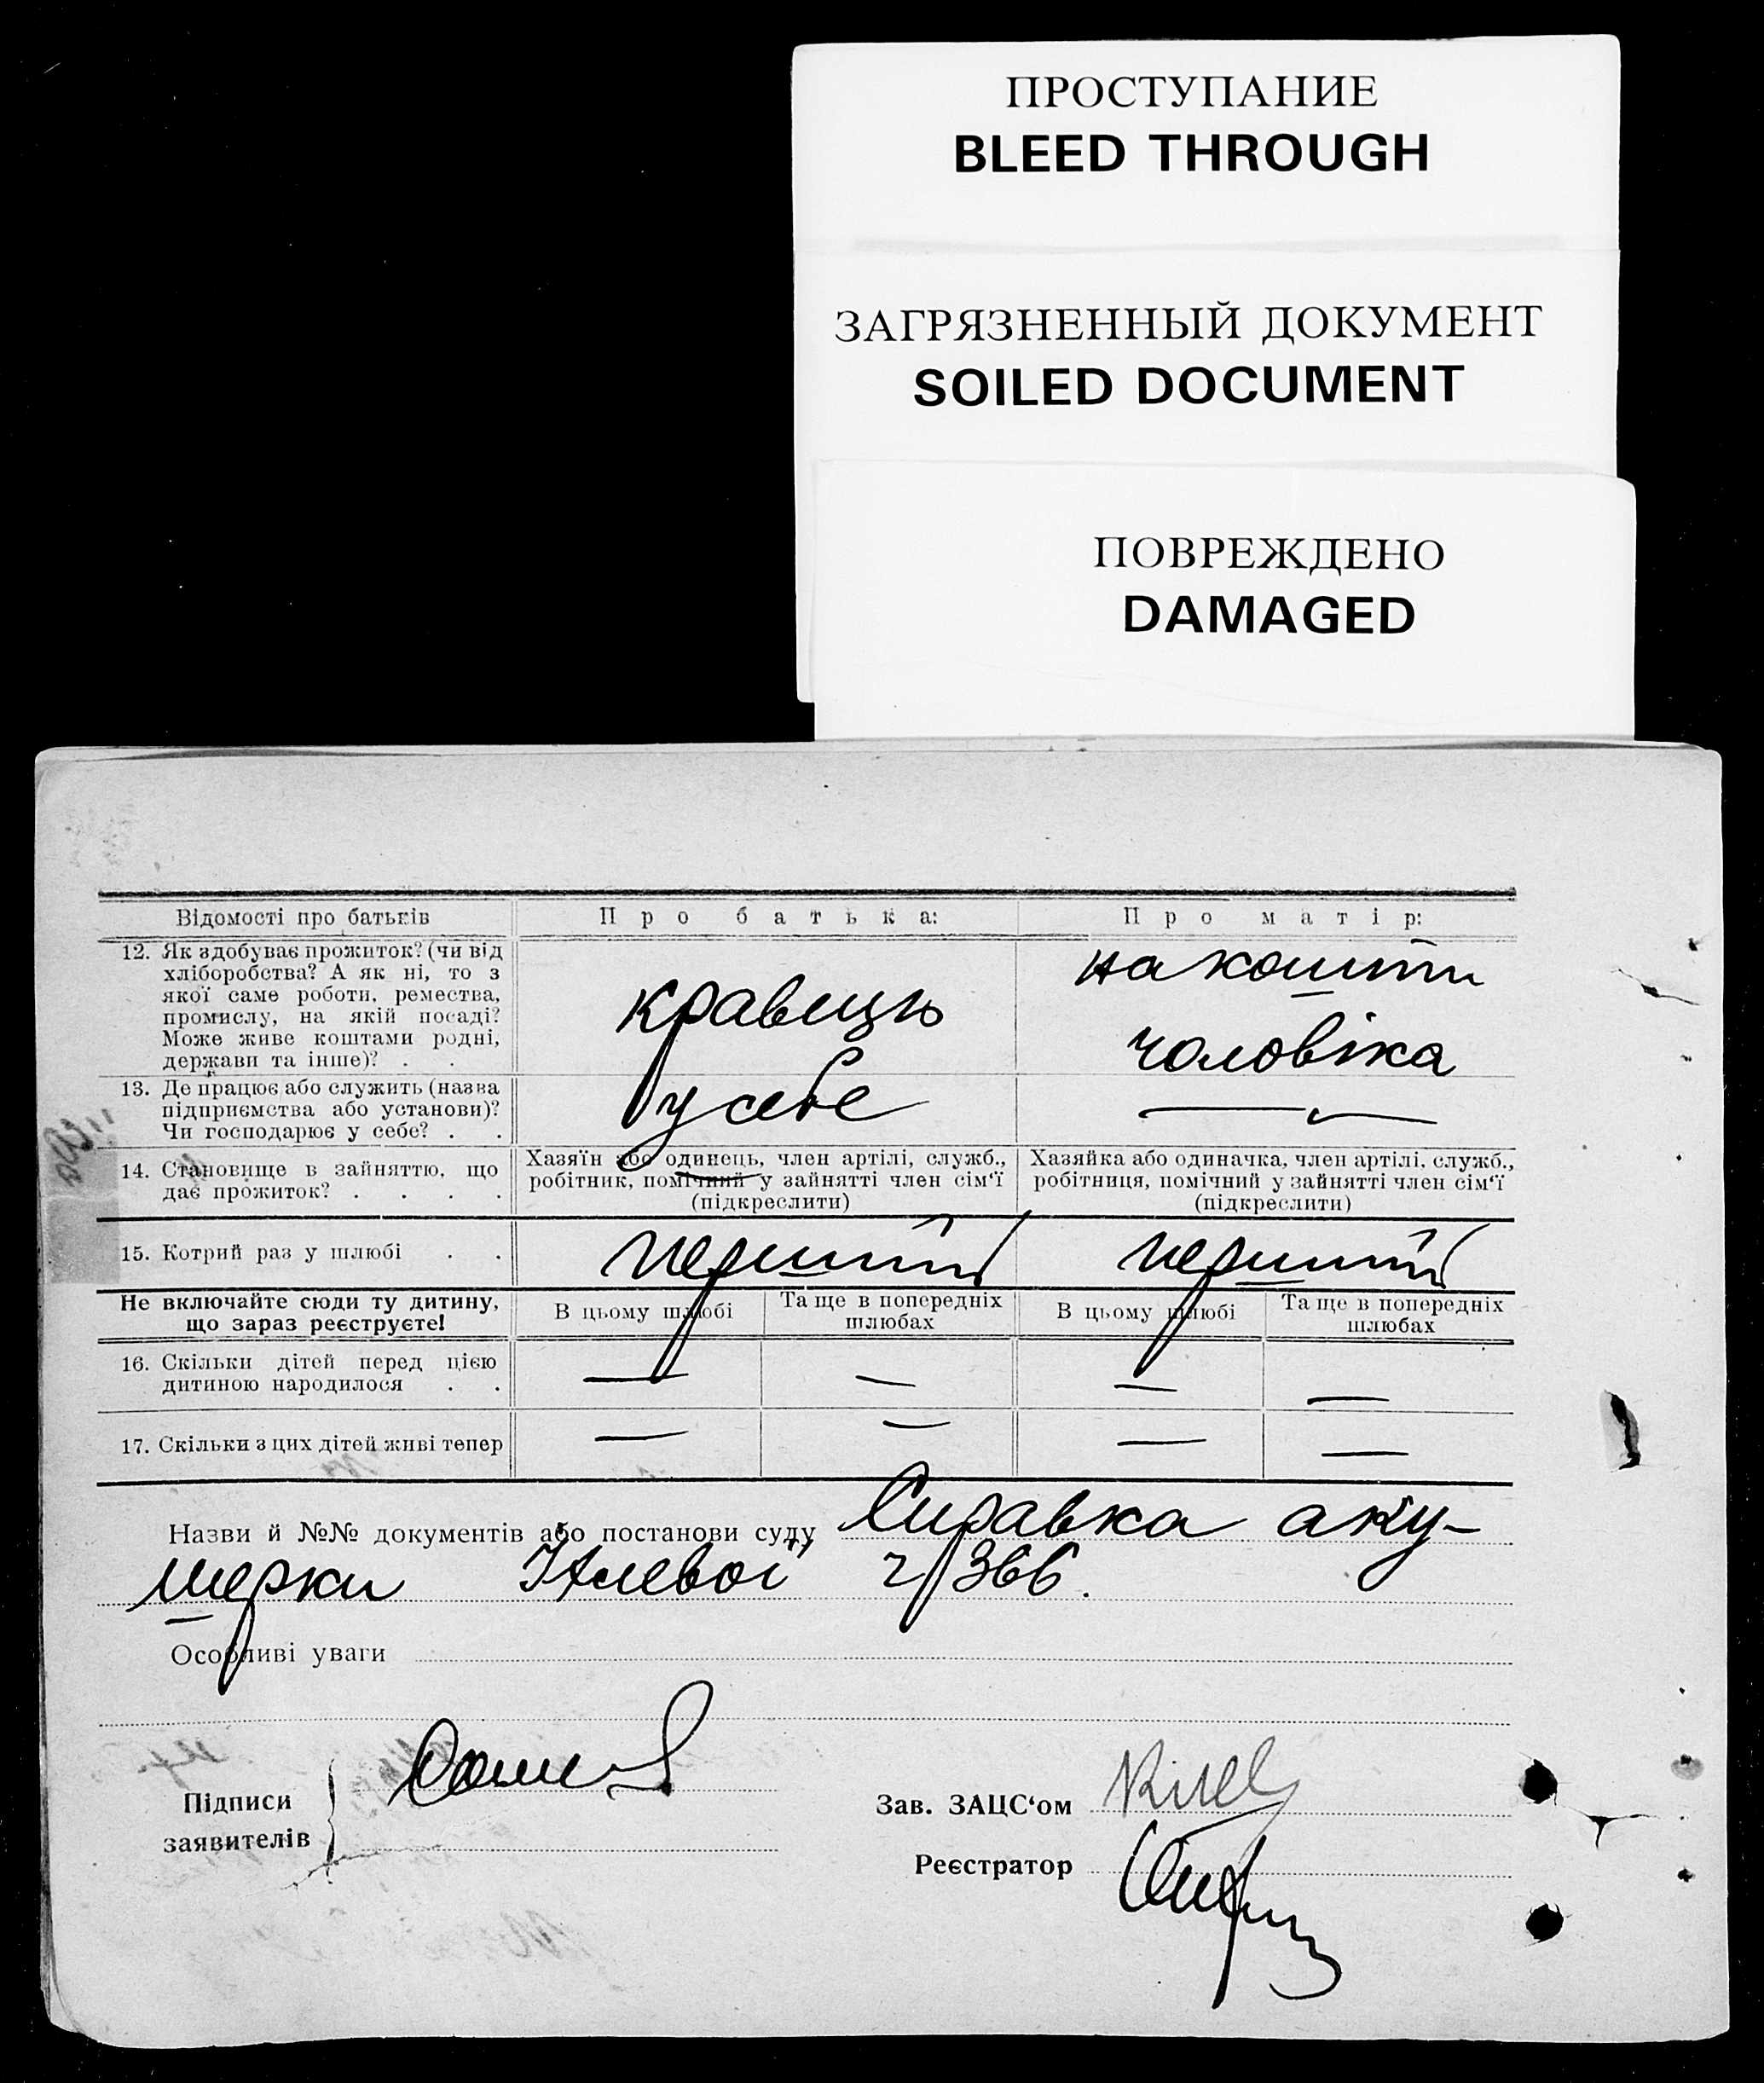 ПРОСТУПАНИЕ
BLEED THROUGH
ЗАГРЯЗНЕННЫЙ ДОКУМЕНТ
SOILED DOCUMENT
ПОВРЕЖДЕНО
DAMAGED
Відомості про батьків
Про батька:
Про матір:
12. Як здобуває прожиток? (чи від
хліборобства? А як ні, то з
якої саме роботи, ремества,
промислу, на якій посаді?
Може живе коштами родні,
держави та інше)? . .
кравець
на кошти
чоловіка
13. Де працює або служить (назва
підприємства або установи)?
Чи господарює у себе? . .
у себе
—
14. Становище в зайняттю, що
дає прожиток? . . . .
Хазяїн або одинець, член артілі, служб.,
робітник, помічний у зайнятті член сім‘ї
(підкреслити)
Хазяйка або одиначка, член артілі, служб.,
робітниця, помічний у зайнятті член сім‘ї
(підкреслити)
15. Котрий раз у шлюбі . .
перший
перший
Не включайте сюди ту дитину,
що зараз реєструєте!
В цьому шлюбі
Та ще в попередніх
шлюбах
В цьому шлюбі
Та ще в попередніх
шлюбах
16. Скільки дітей перед цією
дитиною народилося . .
— — — —
17. Скільки з цих дітей живі тепер
— — — —
Назви й №№ документів або постанови суду Справка аку-
шерки ч 366.
Особливі уваги
Підписи
заявителів
Зав. ЗАЦС‘ом
Реєстратор